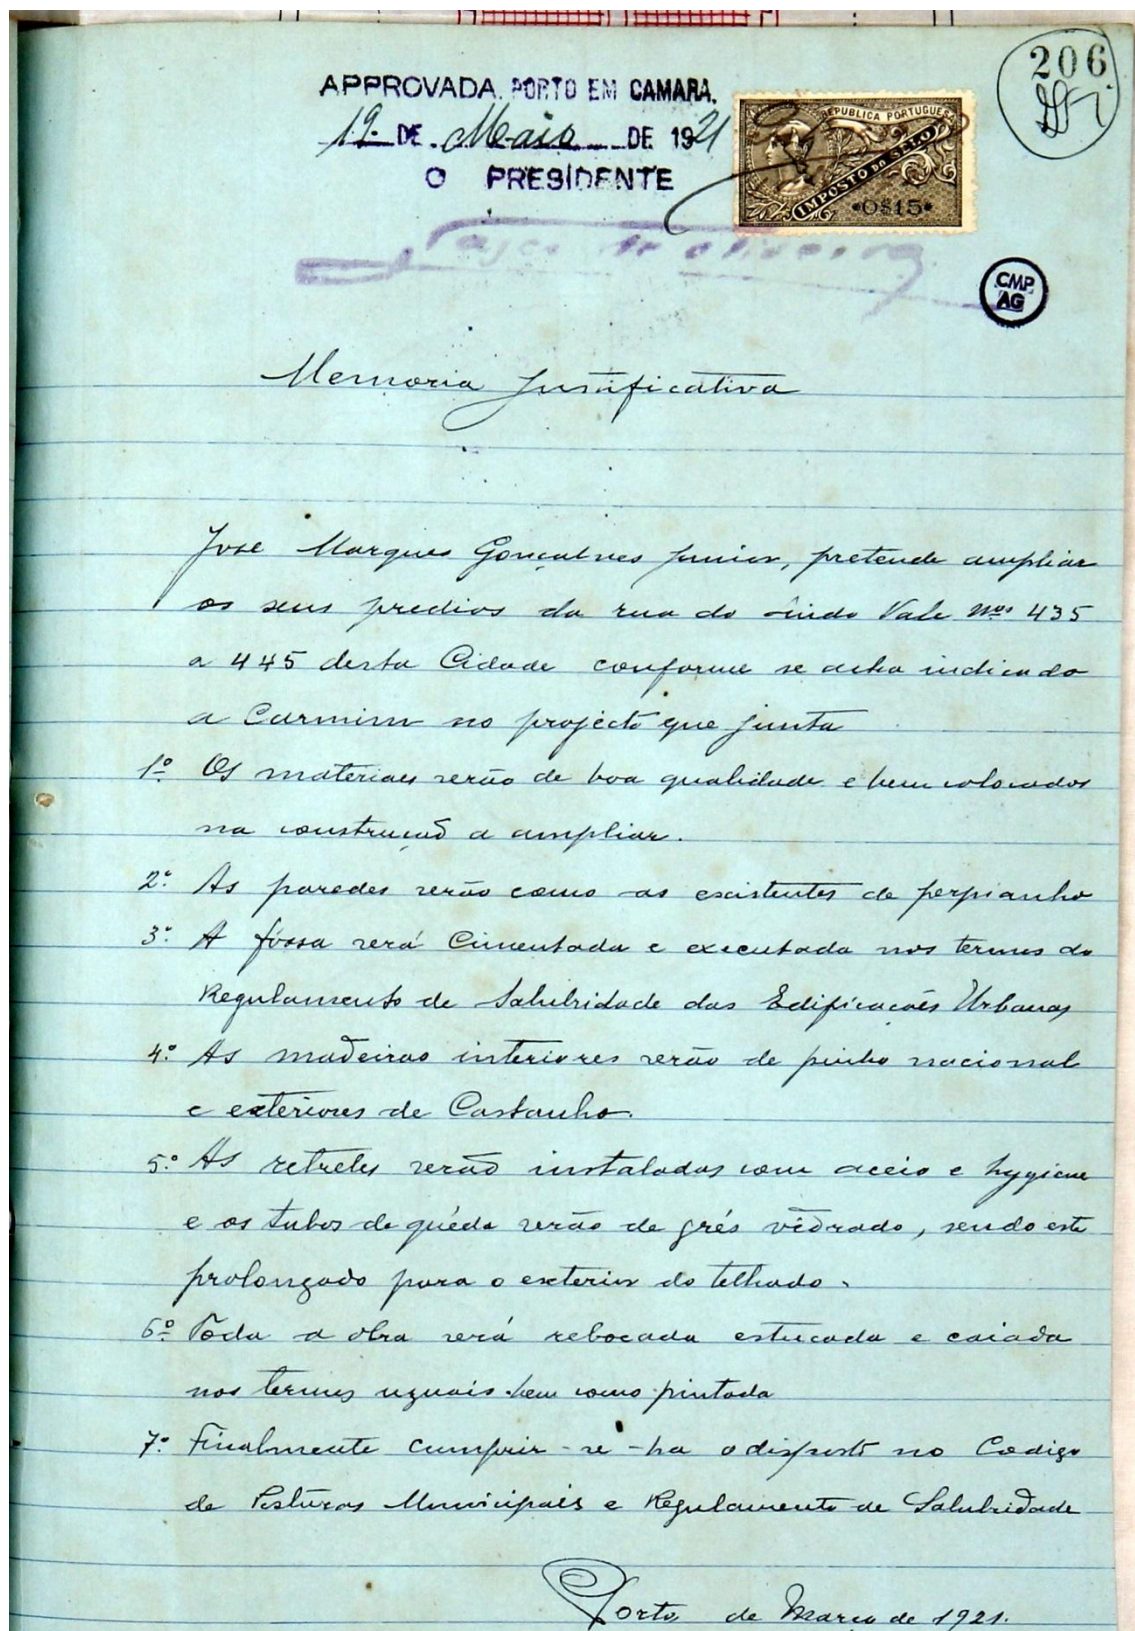 206
APPROVADA. PORTO EM CAMARA.
19 DE Maio DE 1921
O PRESIDENTE
REPUBLICA PORTUGUESA
IMPOSTO DO SELO
*0$15*
CMP
AG
Memoria Justificativa
José Marques Gonçalves Junior, pretende ampliar
os seus predios da rua do Lindo Vale Nos 435
a 445 desta Cidade conforme se acha indicado
a Carmim no projécto que junta
1º Os materiaes serão de boa qualidade e bem colocados
na construcção a ampliar.
2º As paredes serão como as existentes de perpianho
3º A fóssa será Cimentada e executada nos termos do
Regulamento de Salubridade das Edificacões Urbanas
4º As madeiras interiores serão de pinho nacional
e exteriores de Castanho.
5º As retretes serão instaladas com aceio e hygiene
e os tubos de quéda serão de grés vidrado, sendo este
prolongado para o exterior do telhado.
6º Toda a obra será rebocada estucada e caiada
nos termos uzuais bem como pintada
7º Finalmente cumprir-se-ha o disposto no Codigo
de Posturas Municipais e Regulamento de Salubridade
Porto de Março de 1921.